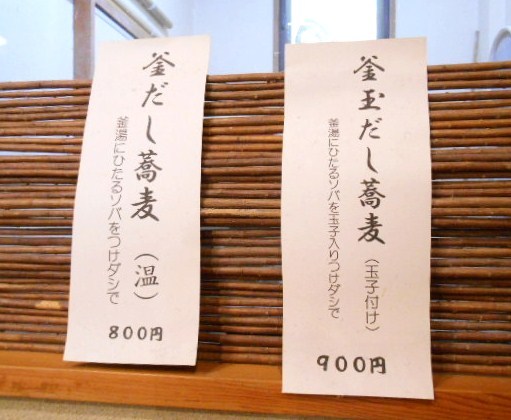 釜玉だし蕎麦(玉子付け)
釜湯にひたるソバを玉子入りつけダシで
900円
釜だし蕎麦(温)
釜湯にひたるソバをつけダシで
800円